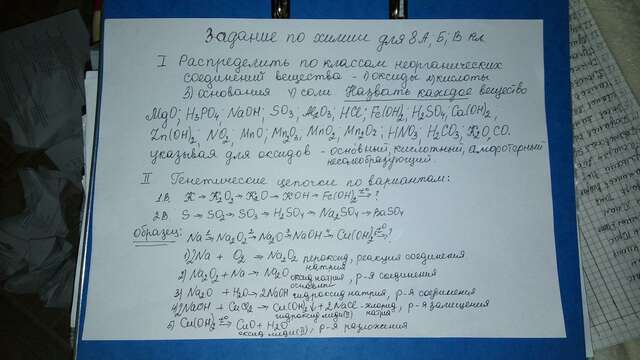 Задание по химии для 8 А, Б, В кл
I Распределить по классам неорганических
соединений вещества - 1) оксиды 2) кислоты
3) основания 4) соли Назвать каждое вещество
MgO; H3PO4; NaOH; SO3; Al2O3; HCl; Fe(OH)2; H2SO4, Ca(OH)2,
Zn(OH)2, NO2, MnO; Mn2O3, MnO2, Mn2O7; HNO3; H2CO3; K2O, CO.
указывая для оксидов - основный, кислотный, амфотерный
несолеобразующий.
II Генетические цепочки по вариантам:
1 В. K → K2O2 → K2O → KOH → Fe(OH)2 t° → ?
2 В. S → SO2 → SO3 → H2SO4 → Na2SO4 → BaSO4
Образец: Na 1→ Na2O2 2→ Na2O 3→ NaOH 4→ Cu(OH)2 t° → ?
1) 2Na + O2 = Na2O2 пероксид натрия, реакция соединения
2) Na2O2 + Na → Na2O оксид натрия основный, р-я соединения
3) Na2O + H2O → 2NaOH гидроксид натрия, р-я соединения
4) 2NaOH + CuCl2 → Cu(OH)2↓ + 2NaCl - хлорид натрия, р-я замещения
гидроксид меди (II)
5) Cu(OH)2 t° → CuO + H2O, р-я разложения
оксид меди (II)